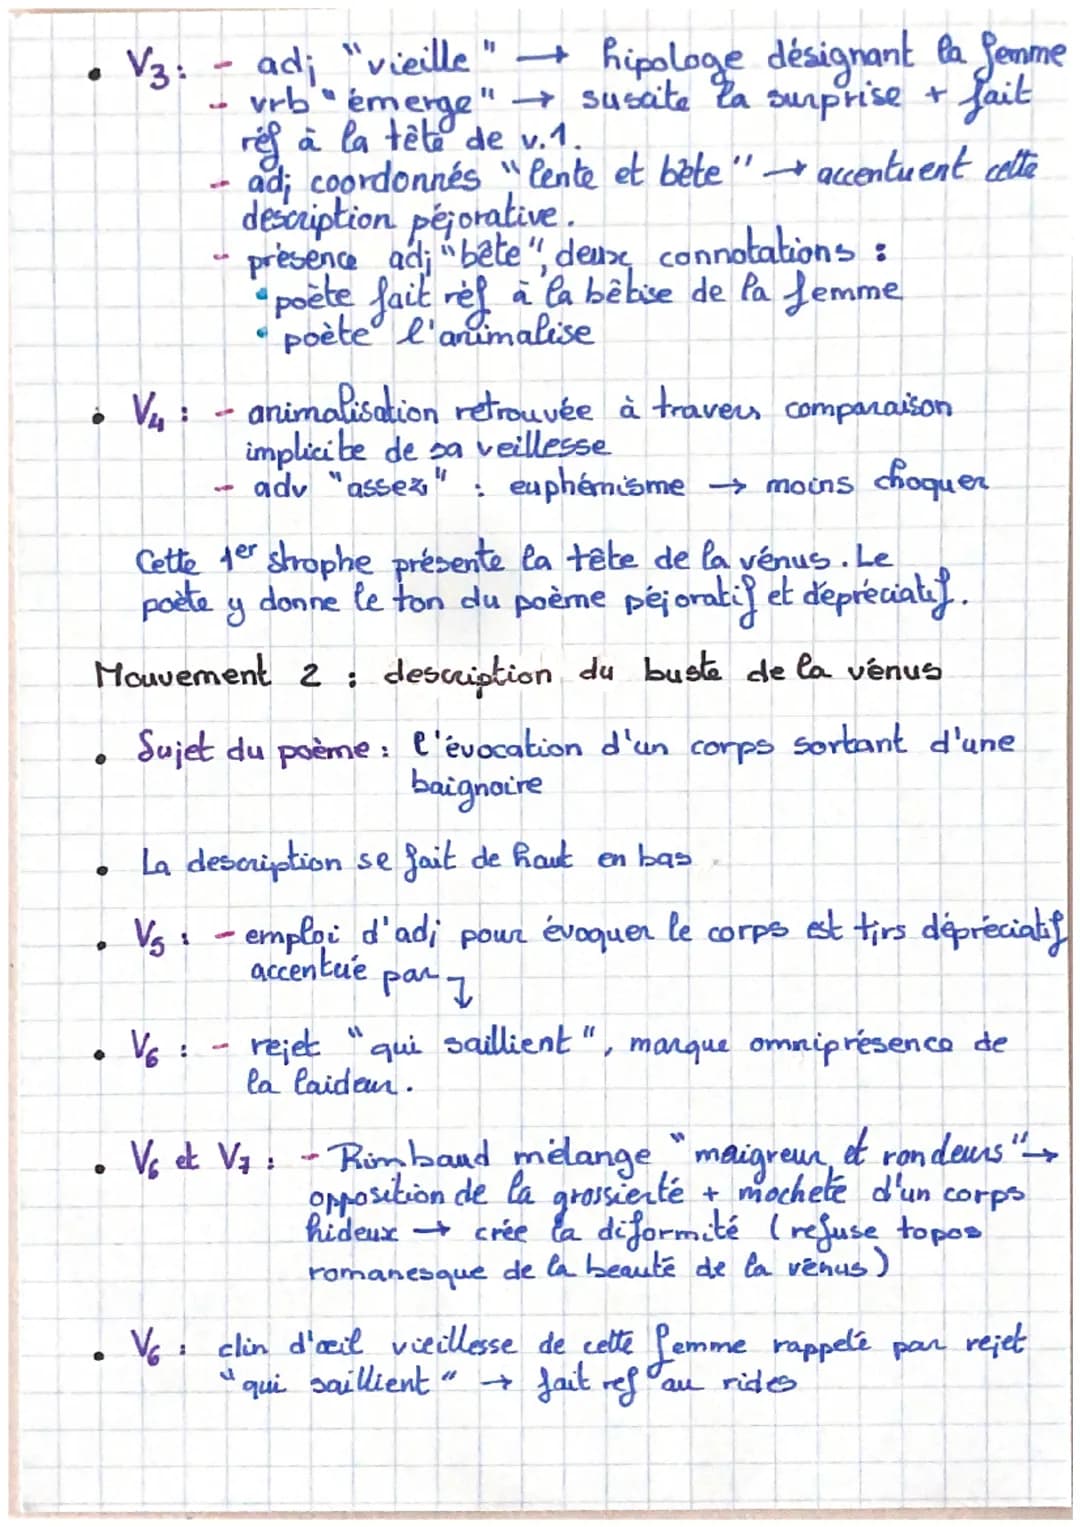 • V3 : - adj "vieille" → hipologe désignant la femme
- vrb "émerge" → suscite la surprise + fait
réf à la tête de v.1.
- adj coordonnés "lente et bète" → accentuent cette
description péjorative.
- présence adj "bête", deux connotations :
• poète fait réf à la bêtise de la femme
• poète l'animalise
• V4 : - animalisation retrouvée à travers comparaison
implicite de sa veillesse
- adv "assez" : euphémisme → moins choquer
Cette 1er strophe présente la tête de la vénus. Le
poète y donne le ton du poème péjoratif et dépréciatif.
Mouvement 2 : description du buste de la vénus
• Sujet du poème : l'évocation d'un corps sortant d'une
baignoire
• La description se fait de haut en bas
• V5 : - emploi d'adj pour évoquer le corps est tjrs dépréciatif
accentué par ↓
• V6 : - rejet "qui saillient", marque omniprésence de
la laideur.
• V6 et V7 : - Rimbaud mélange "maigreur et rondeurs" →
opposition de la grossierté + mocheté d'un corps
hideux → crée la diformité (refuse topos
romanesque de la beauté de la vénus)
• V6 : clin d'œil vieillesse de cette femme rappelé par rejet
"qui saillient" → fait ref au rides